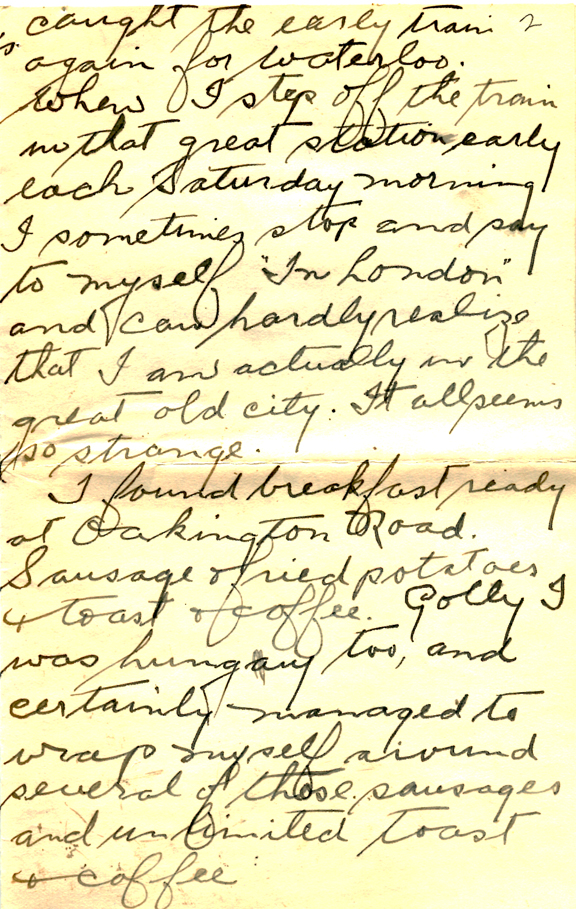 caught the early train 2
again for Waterloo.
When I step off the train
in that great station early
each Saturday morning
I sometimes stop and say
to myself "In London"
and can hardly realize
that I am actually in the
great old city. It all seems
so strange.
I found breakfast ready
at Oakington Road.
Sausage & fried potatoes
& toast & coffee. Golly I
was hungary too, and
certainly managed to
wrap myself around
several of those sausages
and unlimited toast
& coffee